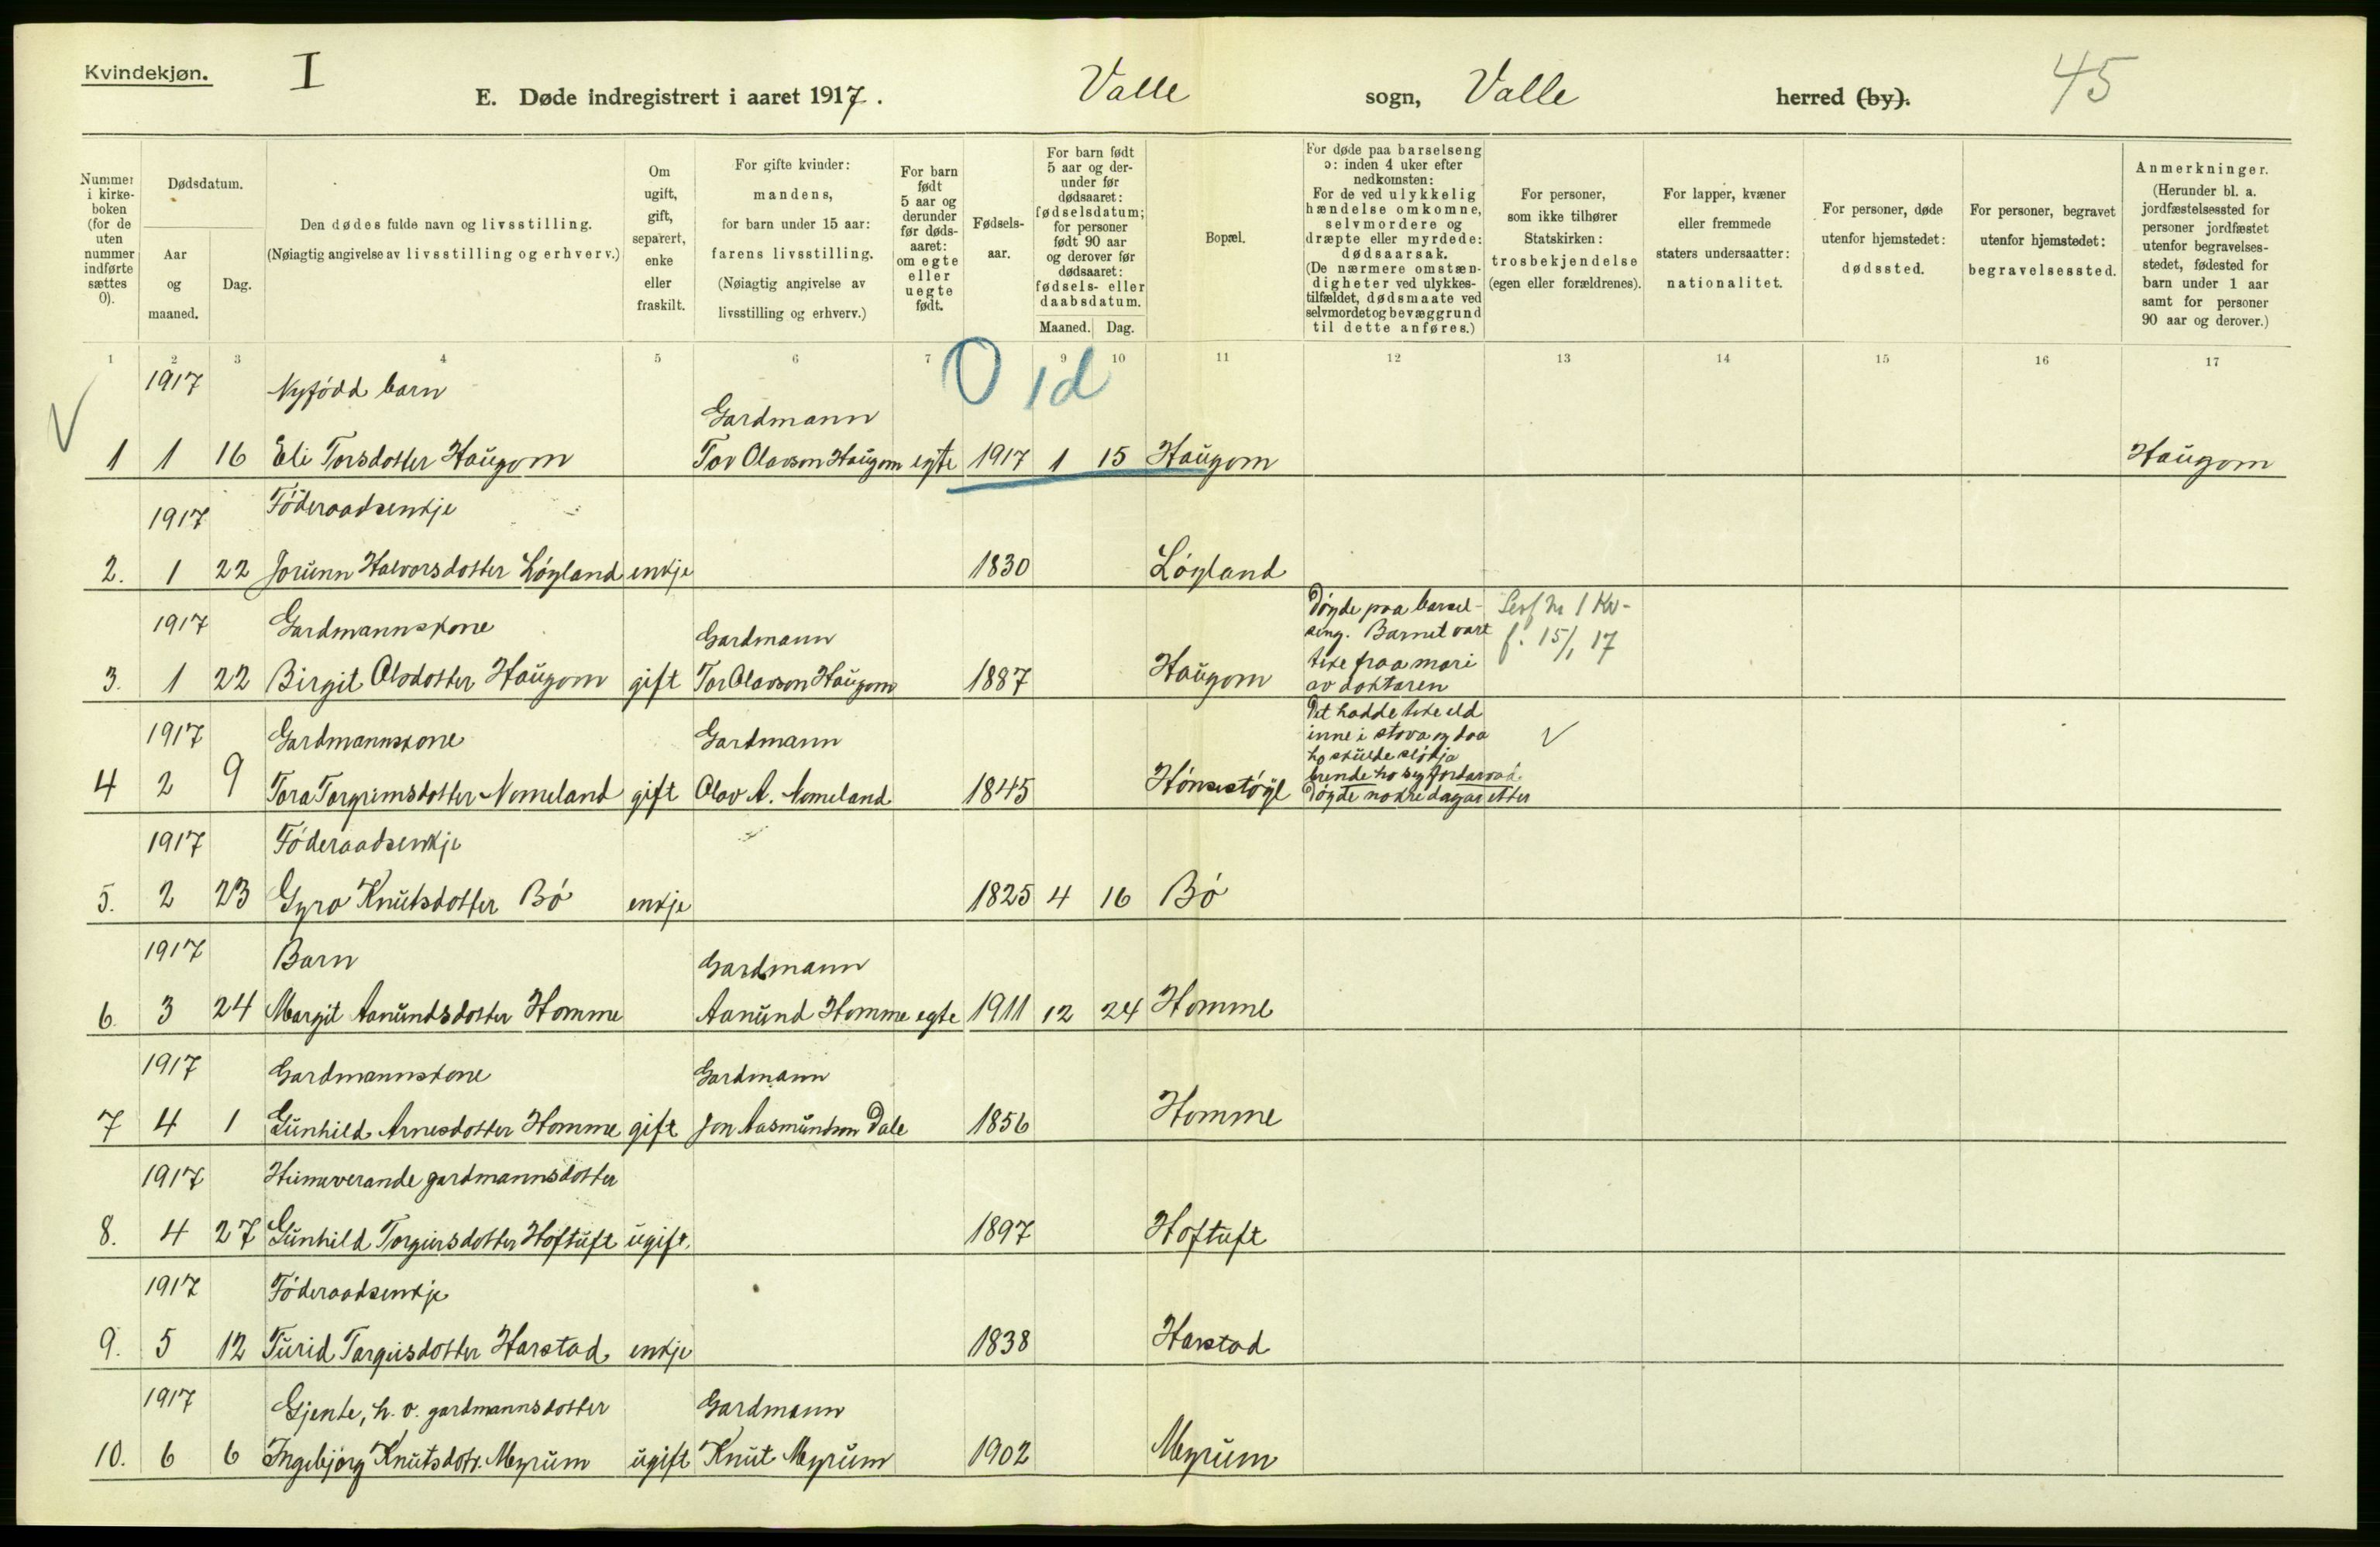 Kvindekjøn.
I
E. Døde indregistrert i aaret 1917.
Valle sogn, Valle herred (by).
45
Nummer i kirkeboken (for de uten nummer indførte sættes 0).
Dødsdatum.
Aar og maaned.
Dag.
Den dødes fulde navn og livsstilling.
(Nøiagtig angivelse av livsstilling og erhverv.)
Om ugift, gift, separert, enke eller fraskilt.
For gifte kvinder:
mandens,
for barn under 15 aar:
farens livsstilling.
(Nøiagtig angivelse av
livsstilling og erhverv.)
For barn født 5 aar og derunder før dødsaaret: om egte eller uegte født.
Fødselsaar.
For barn født 5 aar og derunder før dødsaaret: fødselsdatum; for personer født 90 aar og derover før dødsaaret: fødsels- eller daabsdatum.
Maaned. Dag.
Bopæl.
For døde paa barselseng
ɔ: inden 4 uker efter
nedkomsten:
For de ved ulykkelig
hændelse omkomne,
selvmordere og
dræpte eller myrdede:
dødsaarsak.
(De nærmere omstæn-
digheter ved ulykkes-
tilfældet, dødsmaate ved
selvmordet og bevæggrund
til dette anføres.)
For personer,
som ikke tilhører
Statskirken:
trosbekjendelse
(egen eller forældrenes).
For lapper, kvæner
eller fremmede
staters undersaatter:
nationalitet.
For personer, døde
utenfor hjemstedet:
dødssted.
For personer, begravet
utenfor hjemstedet:
begravelsessted.
Anmerkninger.
(Herunder bl. a.
jordfæstelsessted for
personer jordfæstet
utenfor begravelses-
stedet, fødested for
barn under 1 aar
samt for personer
90 aar og derover.)
1 2 3 4 5 6 7 9 10 11 12 13 14 15 16 17
0 1d
1917 Nyfödd barn Gardmann
1 1 16 Eli Torsdotter Haugom Tor Olavson Haugom egte 1917 1 15 Haugom Haugom
1917 Föderaadsenkje
2. 1 22 Jorunn Halvorsdotter Löyland enkje 1830 Löyland
1917 Gardmannskone Gardmann
3. 1 22 Birgit Olsdotter Haugom gift Tor Olavson Haugom 1887 Haugom
Döyde paa barsel-
seng. Barnet vart
teke fraa mori
av doktaren
Nr 1 Kv-
f. 15/1 17
1917 Gardmannskone Gardmann
4 2 9 Tora Torgrimsdotter Nomeland gift Olav A. Nomeland 1845 Hönsestöyl
Det hadde teke eld
inne i stova og daa
ho skulde slökja
brende ho seg fordarvad.
Döyde nokre dagar etter
1917 Föderaadsenkje
5. 2 23 Gyro Knutsdotter Bö enkje 1825 4 16 Bö
1917 Barn Gardmann
6. 3 24 Margit Aanundsdotter Homme Aanund Homme egte 1911 12 24 Homme
1917 Gardmannskone Gardmann
7 4 1 Gunhild Arnesdotter Homme gift Jon Aasmundson Dale 1856 Homme
1917 Heimeverande gardmannsdotter
8. 4 27 Gunhild Torgeirsdotter Hoftuft ugift. 1897 Hoftuft
1917 Föderaadsenkje
9. 5 12 Turid Targeisdotter Harstad enkje 1838 Harstad
1917 Gjente, h. v. gardmannsdotter Gardmann
10. 6 6 Ingebjörg Knutsdotr. Myrum ugift Knut Myrum 1902 Myrum